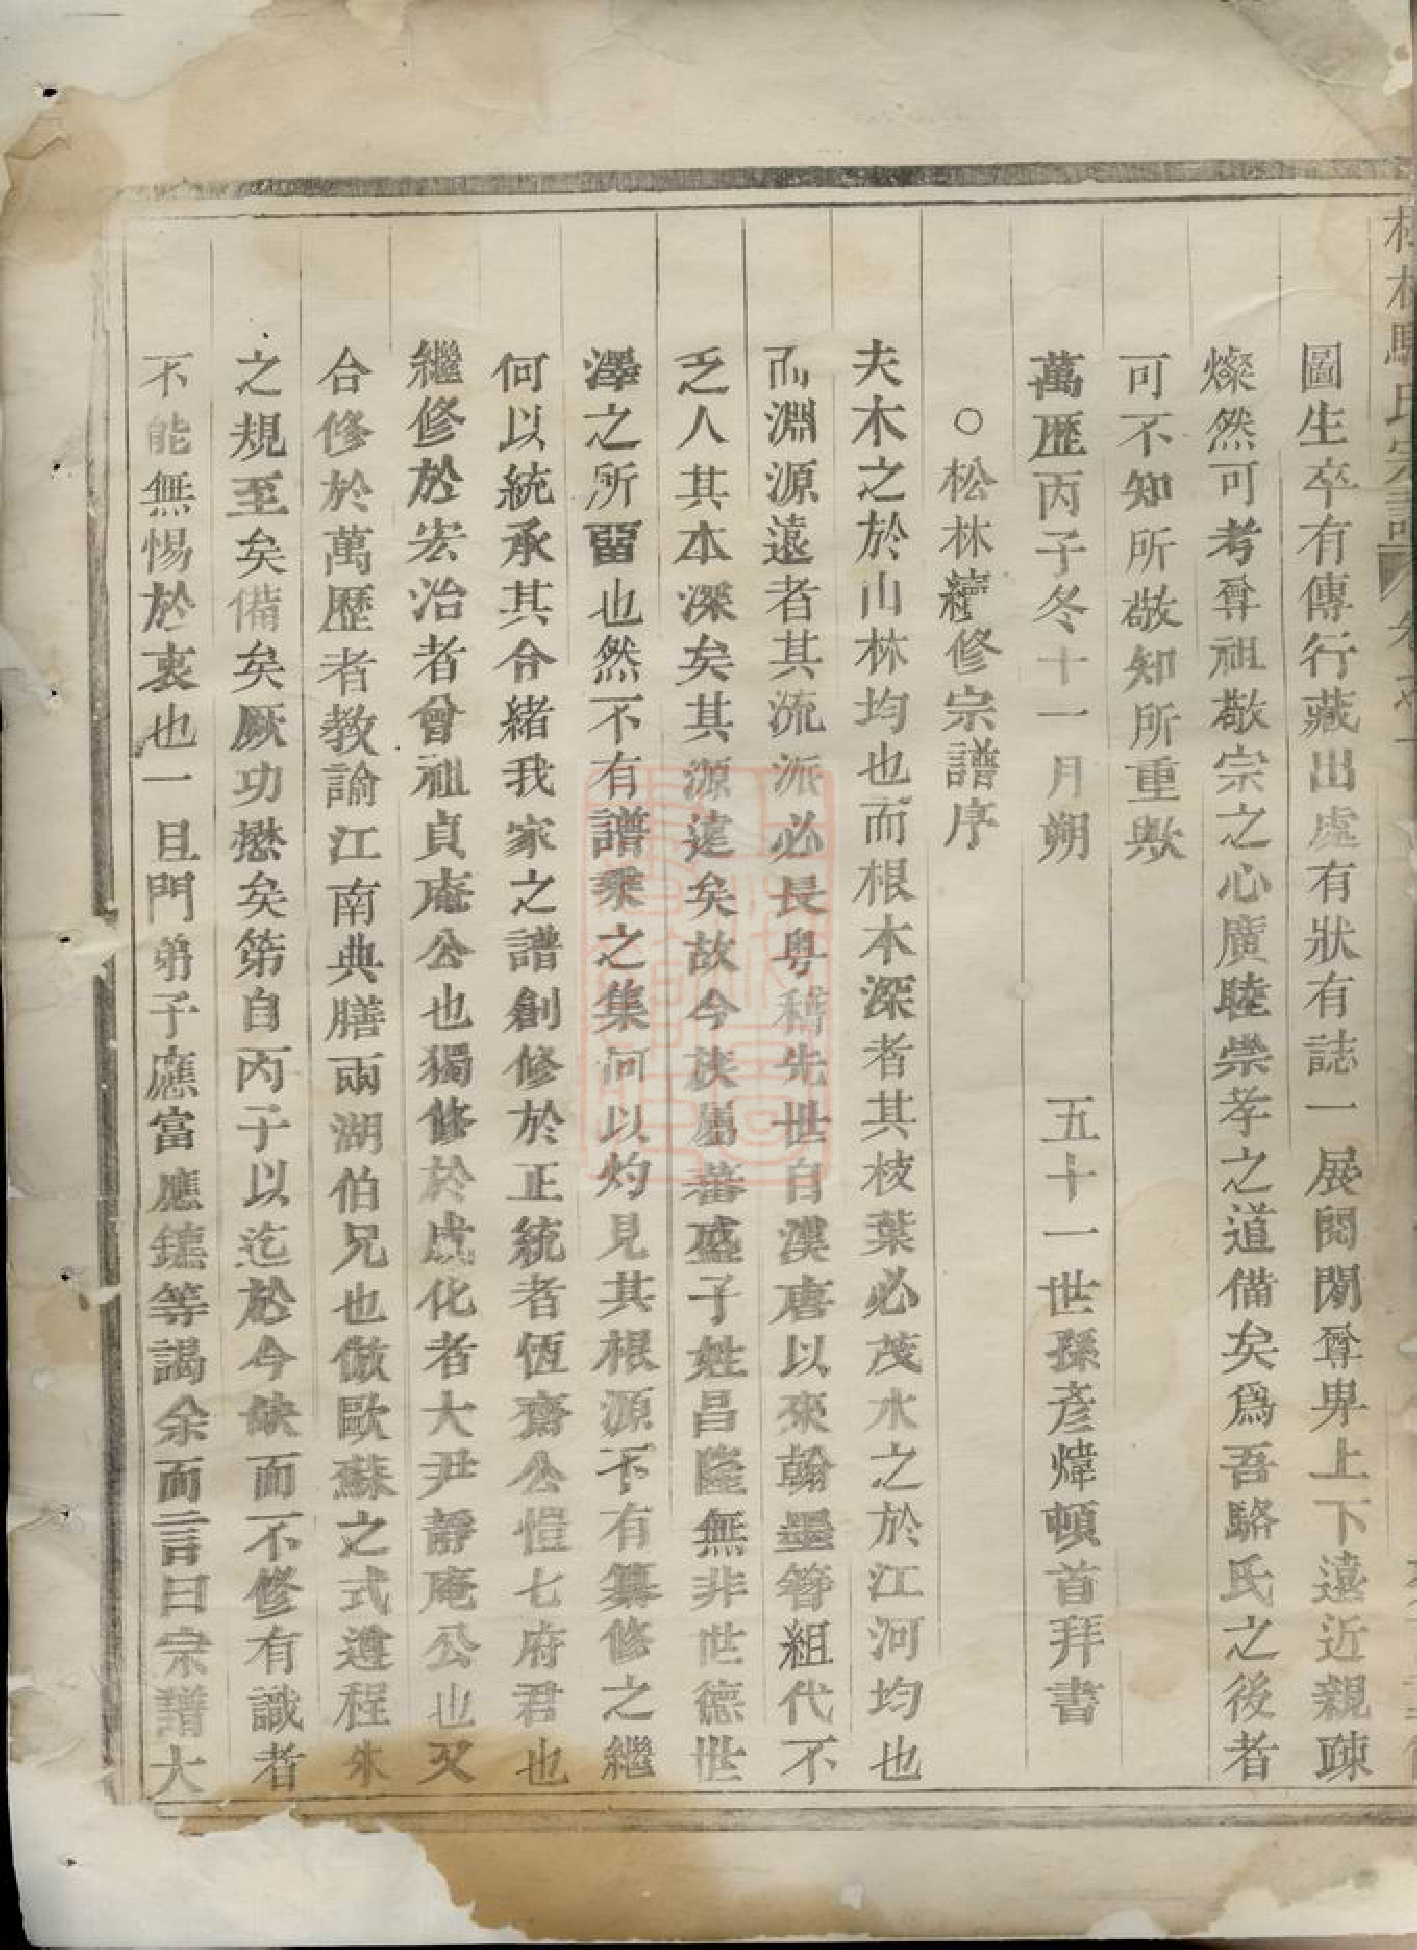 圖生卒有傳行藏出處有狀有誌一展閱間尊卑上下遠近親疎
燦然可考尊祖敬宗之心廣睦崇孝之道備矣爲吾駱氏之後者
可不知所敬知所重歟
萬歷丙子冬十一月朔 五十一世孫彥煒頓首拜書
○松林續修宗譜序
夫木之於山林均也而根木深者其枝葉必茂水之於江河均也
而淵源遠者其流派必長粤稽先世自漢唐以來翰墨簪組代不
乏人其本深矣其源遠矣故今族屬蕃盛子姓昌隆無非世德世
澤之所畱也然不有譜乘之集何以灼見其根源不有纂修之繼
何以統承其合緒我家之譜創修於正統者恆齋公愷七府君也
繼修於宏治者曾祖貞庵公也獨修於成化者大尹靜庵公也又
合修於萬歷者教諭江南典膳兩湖伯兄也倣歐蘇之式遵程朱
之規至矣備矣厥功懋矣第自丙子以迄於今缺而不修有識者
不能無惕於衷也一旦門弟子應富應鐘等謁余而言曰宗譜大